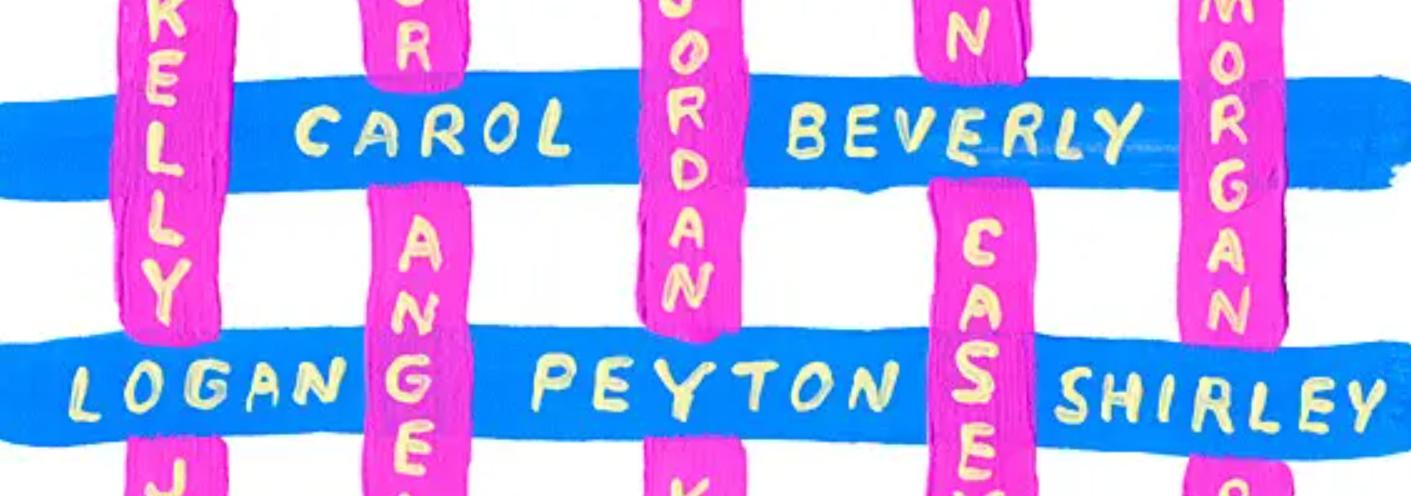 KELLY
JORDAN
MORGAN
CAROL
BEVERLY
ANGE
CASE
LOGAN
PEYTON
SHIRLEY